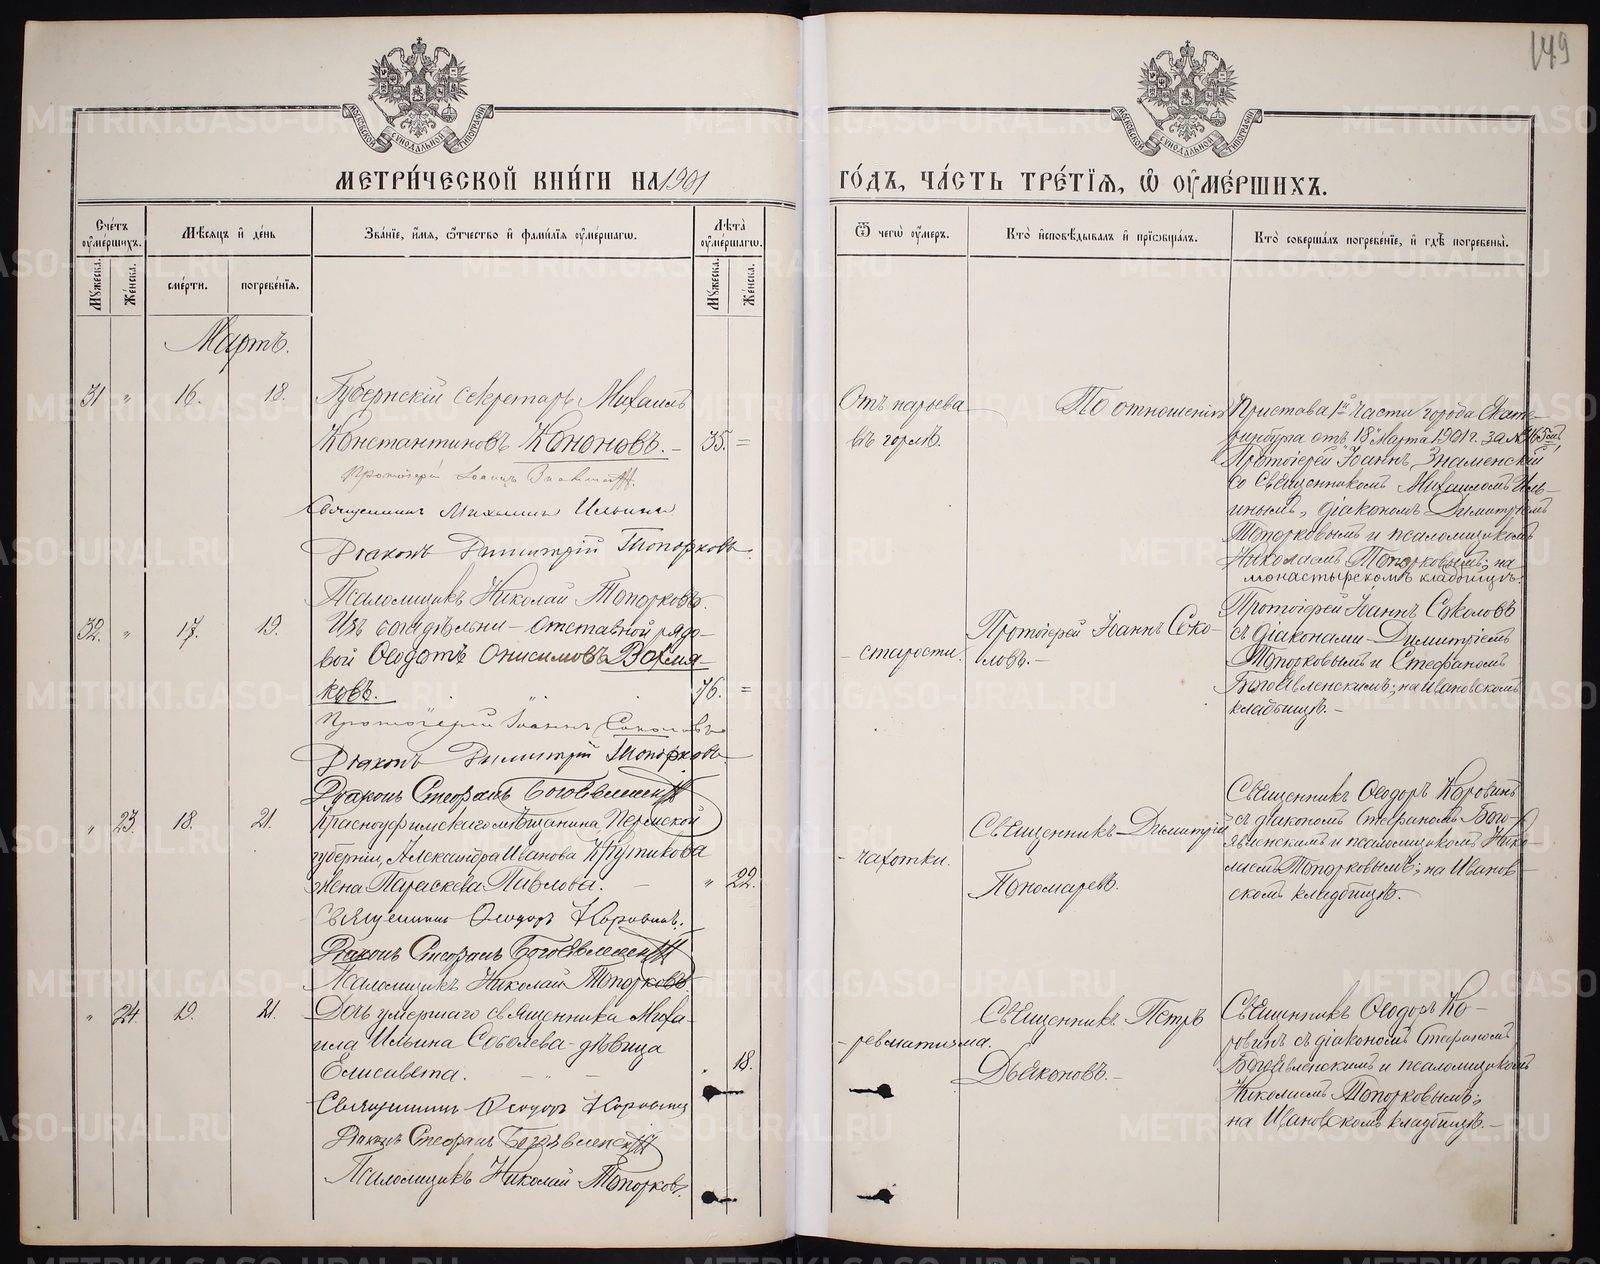 149
МОСКОВСКОЙ СѴНОДАЛЬНОЙ ТИПОГРАФІИ
МОСКОВСКОЙ СѴНОДАЛЬНОЙ ТИПОГРАФІИ
МЕТРИ́ЧЕСКОЙ КНИ́ГИ НА 1901
ГО́ДЪ, ЧА́СТЬ ТРЕ́ТІѦ, Ѡ҆ ОУ҆МЕ́РШИХЪ.
Сче́тъ оу҆ме́ршихъ.
Мѣ́сѧцъ и҆ де́нь
Зва́нїе, и҆́мѧ, ѻ҆́тчество и҆ фами́лїѧ оу҆ме́ршагѡ.
Лѣ́та оу҆ме́ршагѡ.
Ѿ чегѡ̀ оу҆́меръ.
Кто̀ и҆сповѣ́дывалъ и҆ прїѡбща́лъ.
Кто̀ соверша́лъ погребе́нїе, и҆ гдѣ̀ погребены̀.
Мꙋ́жеска.
Же́нска.
сме́рти.
погребе́нїѧ.
Мꙋ́жеска.
Же́нска.
Мартъ.
31 " 16. 18.
Губернскій секретарь Михаилъ
Константиновъ Кононовъ. – 35. =
Протоіерей Іоаннъ Знаменскій
Священникъ Михаилъ Ильинъ
Діаконъ Димитрій Топорковъ.
Псаломщикъ Николай Топорковъ.
Отъ нарыва
въ горлѣ.
По отношенію Пристава 1й части города Екате-
ринбурга отъ 18 Марта 1901 г. за №
Протоіерей Іоаннъ Знаменскій
со Священникомъ Михаиломъ Иль-
инымъ, діакономъ Димитріемъ
Топорковымъ и псаломщикомъ
Николаемъ Топорковымъ; на
монастырскомъ кладбищѣ.
32. " 17. 19.
Изъ богадѣльни – Отставной рядо-
вой Ѳеодотъ Онисимовъ Вотя-
ковъ. 76. =
Протоіерей Іоаннъ Соколовъ
Діаконъ Димитрій Топорковъ
Діаконъ Стефанъ Богоявленскій
- старости.
Протоіерей Іоаннъ Соко-
ловъ. –
Протоіерей Іоаннъ Соколовъ
съ діаконами – Димитріемъ
Топорковымъ и Стефаномъ
Богоявленскимъ; на Ивановскомъ
кладбищѣ. –
" 23. 18. 21.
Красноуфимскаго мѣщанина Пермской
губерніи, Александра Иванова Крутикова
жена Параскева Павлова. – " 22.
Священникъ Ѳеодоръ Коровинъ.
Діаконъ Стефанъ Богоявленскій
Псаломщикъ Николай Топорковъ
- чахотки.
Священникъ Димитрій
Пономаревъ.
Священникъ Ѳеодоръ Коровинъ
съ діакономъ Стефаномъ Бого-
явленскимъ и псаломщикомъ Нико-
лаемъ Топорковымъ; на Иванов-
скомъ кладбищѣ. –
" 24. 19. 21.
Дочь умершаго священника Миха-
ила Ильина Соболева – дѣвица
Елисавета. – " 18.
Священникъ Ѳеодоръ Коровинъ
Діаконъ Стефанъ Богоявленскій
Псаломщикъ Николай Топорковъ.
- ревматизма.
Священникъ Петръ
Дьяконовъ. –
Священникъ Ѳеодоръ Ко-
ровинъ съ діакономъ Стефаномъ
Богоявленскимъ и псаломщикомъ
Николаемъ Топорковымъ;
на Ивановскомъ кладбищѣ. –
METRIKI.GASO-URAL.RU